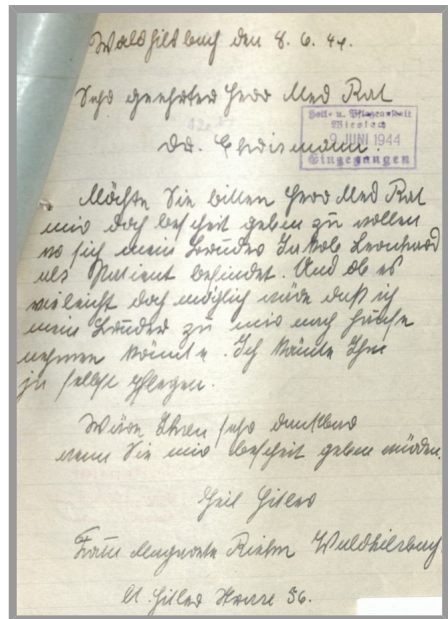 Waldhilsbach den 8. 6. 44.
Sehr geehrter Herr Med Rat
Dr. Christmann.
Heil- u. Pflegeanstalt
Wiesloch
9. JUNI 1944
Eingegangen
Möchte Sie bitten Herr Med Rat
mir doch bescheit geben zu wollen
wo sich mein Bruder Jakob Leonhard
als Patient befindet. Und ob es
vieleicht doch möglich wäre daß ich
mein Bruder zu mir nach Hause
nehmen könnte. Ich könnte Ihn
ja selbst pflegen.
Wäre Ihnen sehr dankbar
wenn Sie mir bescheit geben würden.
Heil Hitler
Frau Magrete Riehm Waldhilsbach
A. Hitler Strase 56.